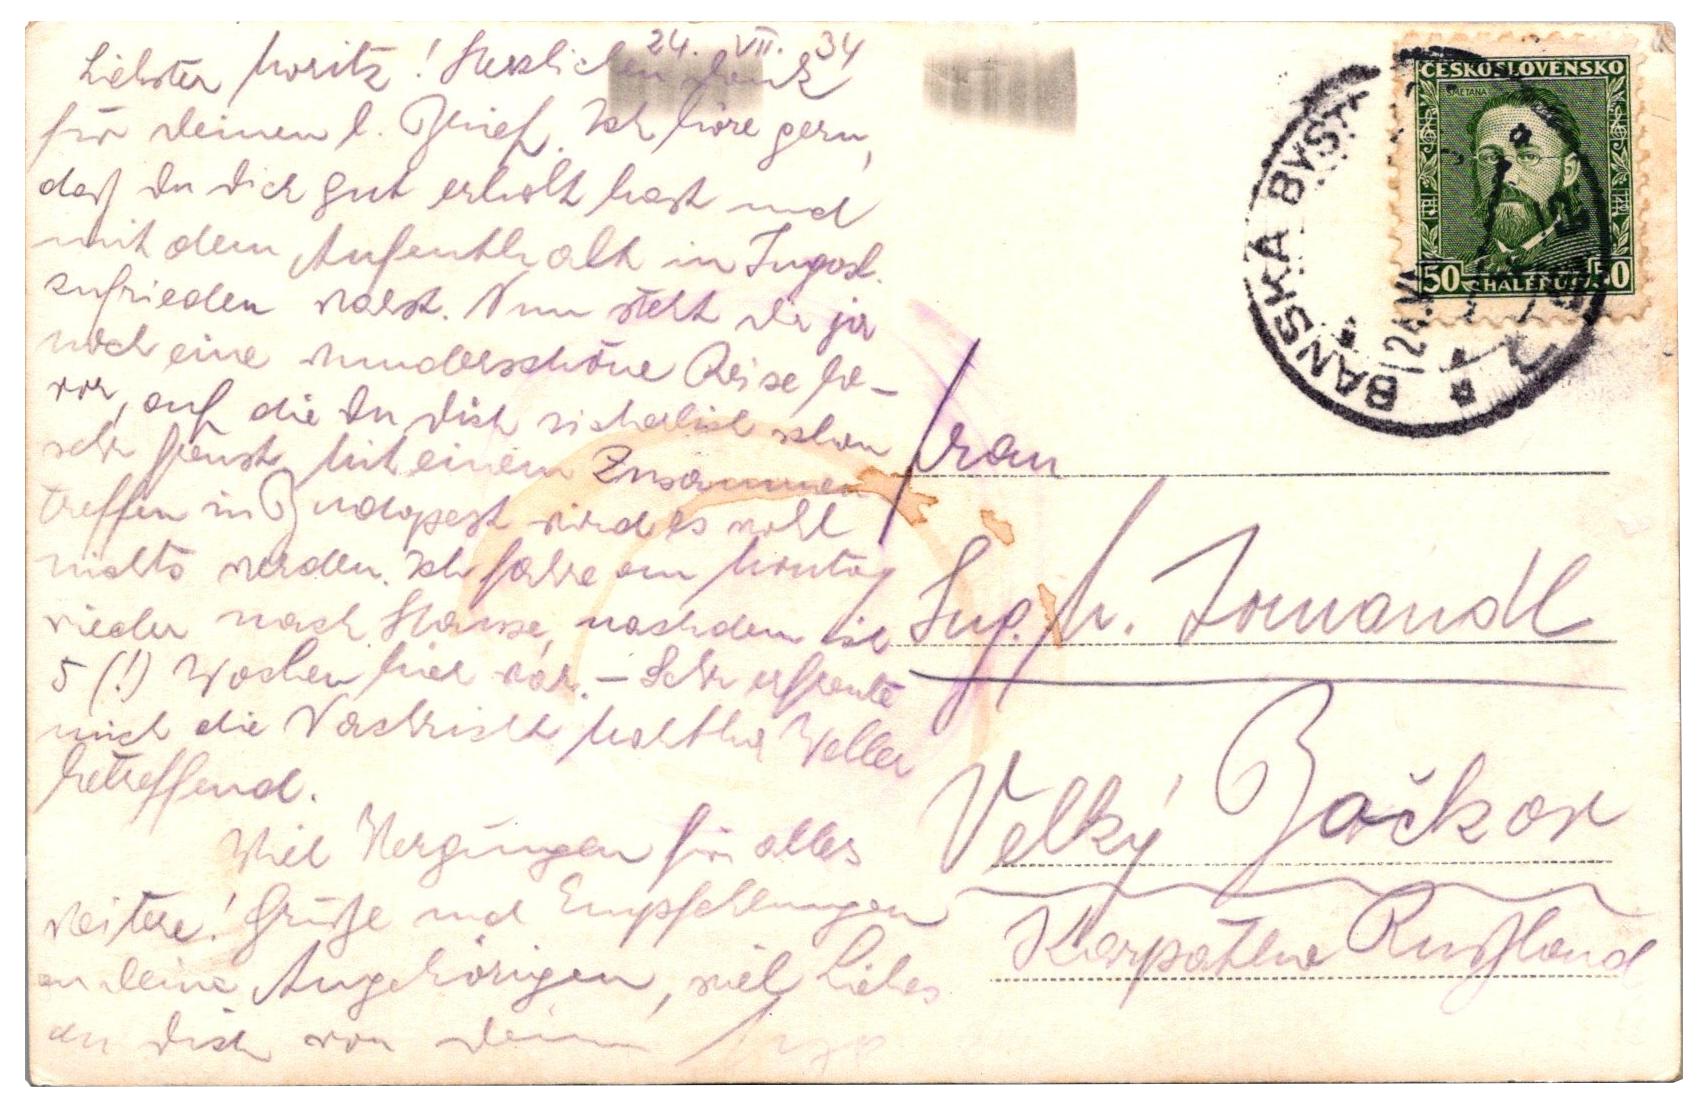 24. VII. 34
Liebster Moritz! Herzlichen Dank
für Deinen l. Brief. Ich höre gern,
daß Du Dich gut erholt hast und
mit dem Aufenthalt in Jugosl.
zufrieden warst. Nun steht Dir ja
noch eine wunderschöne Reise be-
vor, auf die Du Dich sicherlich schon
sehr freust. Mit einem Zusammen
treffen in Budapest wird es wohl
nichts werden. Ich fahre am Montag
wieder nach Hause, nachdem ich
5 (!) Wochen hier war. – Sehr erfreute
mich die Nachricht Weller
betreffend.
Viel Vergnügen für alles
weitere! Grüße und Empfehlungen
an Deine Angehörigen, viel Liebes
an Dich von Deinem
ČESKOSLOVENSKO
SMETANA
50 HALÉŘŮ 50
BANSKÁ BYST
24.VI
Frau
Ing. M.
Velký Bočkov
Karpatho Rußland